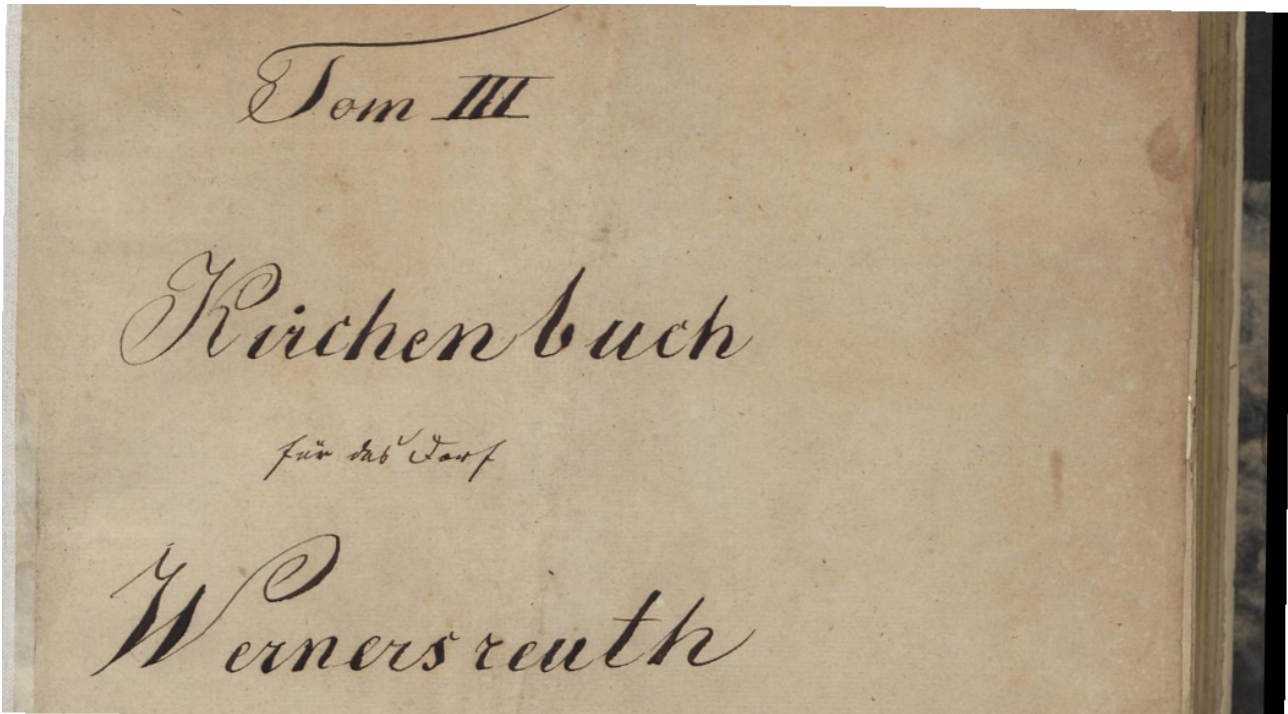 Tom III
Kirchenbuch
für das Dorf
Wernersreuth